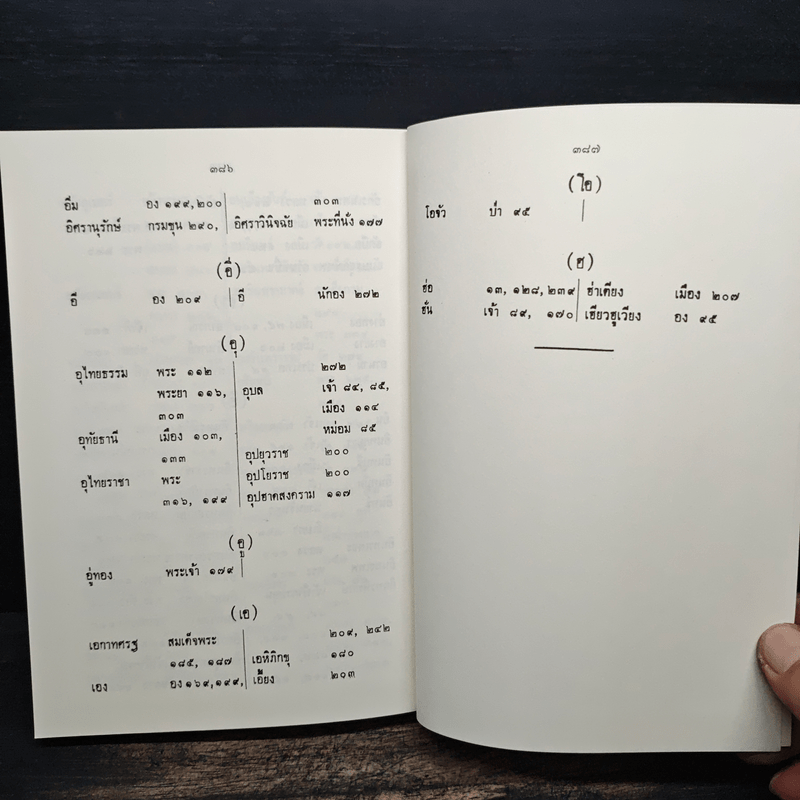 ๓๘๖
อึม อง ๑๙๙,๒๐๐ ๓๐๓
อิศรานุรักษ์ กรมขุน ๒๙๐, อิศราวินิจฉัย พระที่นั่ง ๑๗๗
(อี)
อี อง ๒๐๙ อี นักอง ๒๗๒
(อุ)
อุไทยธรรม พระ ๑๑๒ ๒๗๒
พระยา ๑๑๖, อุบล เจ้า ๘๔, ๘๕,
๓๐๓ เมือง ๑๑๔
อุทัยธานี เมือง ๑๐๓, หม่อม ๘๕
๑๓๓ อุปยุวราช ๒๐๐
อุไทยราชา พระ อุปโยราช ๒๐๐
๓๑๖, ๑๙๙ อุปฮาดสงคราม ๑๑๗
(อู)
อู่ทอง พระเจ้า ๑๗๙
(เอ)
เอกาทศรฐ สมเด็จพระ ๒๐๙, ๒๔๒
๑๘๕, ๑๘๗ เอหิภิกขุ ๑๘๐
เอง อง ๑๖๙,๑๙๙, เอี้ยง ๒๑๓
๓๘๗
(โอ)
โอจัว บ่ำ ๙๕
(ฮ)
ฮ่อ ๑๓, ๑๒๘, ๒๓๙ ฮ่าเตียง เมือง ๒๐๗
ฮั่น เจ้า ๘๙, ๑๗๐ เฮียวฮูเวียง อง ๙๕